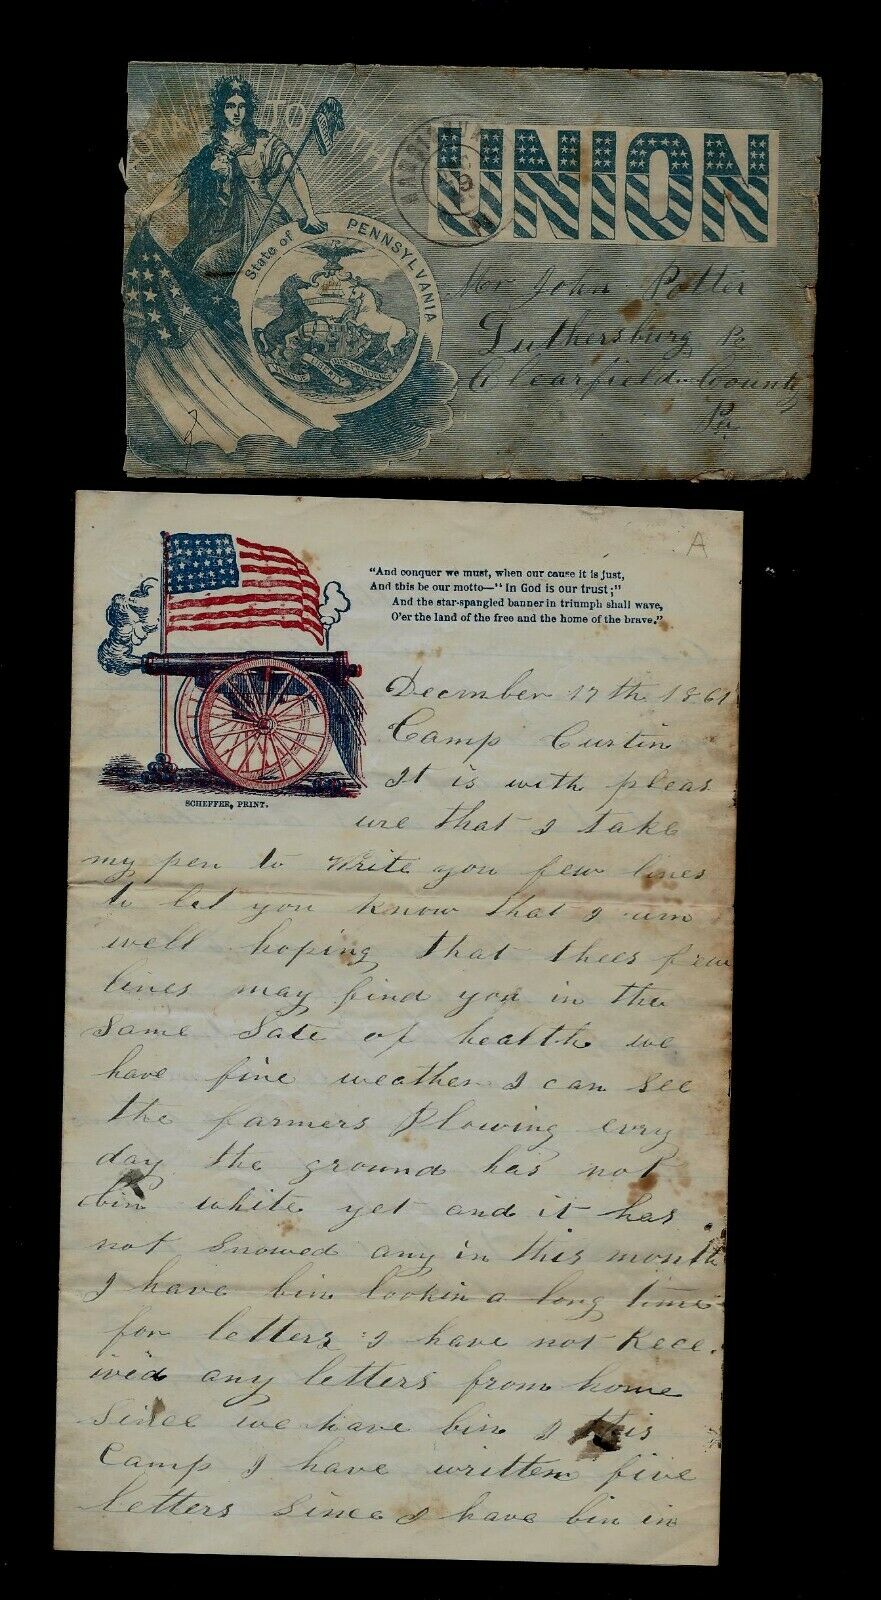 TO TH
UNION
HARRISBURG
PA
State of PENNSYLVANIA
VIRTUE LIBERTY INDEPENDENCE
Mr John Potter
Luthersburg Po
Clearfield County
Pa
A
"And conquer we must, when our cause it is just,
And this be our motto—"In God is our trust;"
And the star-spangled banner in triumph shall wave,
O'er the land of the free and the home of the brave."
SCHEFFER, PRINT.
Decmber 17th 1861
Camp Curtin
It is with pleas
ure that I take
my pen to Write you few lines
to let you know that I am
well hoping that thees few
lines may find you in the
Same Sate of health we
have fine weather I can See
the farmers Plowing evry
day the ground has not
bin white yet and it has
not Snowed any in this month
I have bin lookin a long time
for letters I have not Rece
ived any letters from home
Since we have bin I this
Camp I have written five
letters Since I have bin in